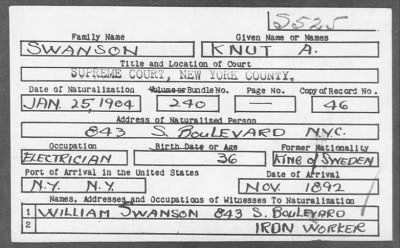 S525
Family Name Given Name or Names
SWANSON KNUT A.
Title and Location of Court
SUPREME COURT, NEW YORK COUNTY.
Date of Naturalization Volume or Bundle No. Page No. Copy of Record No.
JAN. 25, 1904 240 — 46
Address of Naturalized Person
843 S. BOULEVARD N.Y.C.
Occupation Birth Date or Age Former Nationality
ELECTRICIAN 36 KING of SWEDEN
Port of Arrival in the United States Date of Arrival
N.Y. N.Y. NOV. 1892
Names, Addresses and Occupations of Witnesses To Naturalization
1 WILLIAM SWANSON 843 S. BOULEVARD
2 IRON WORKER